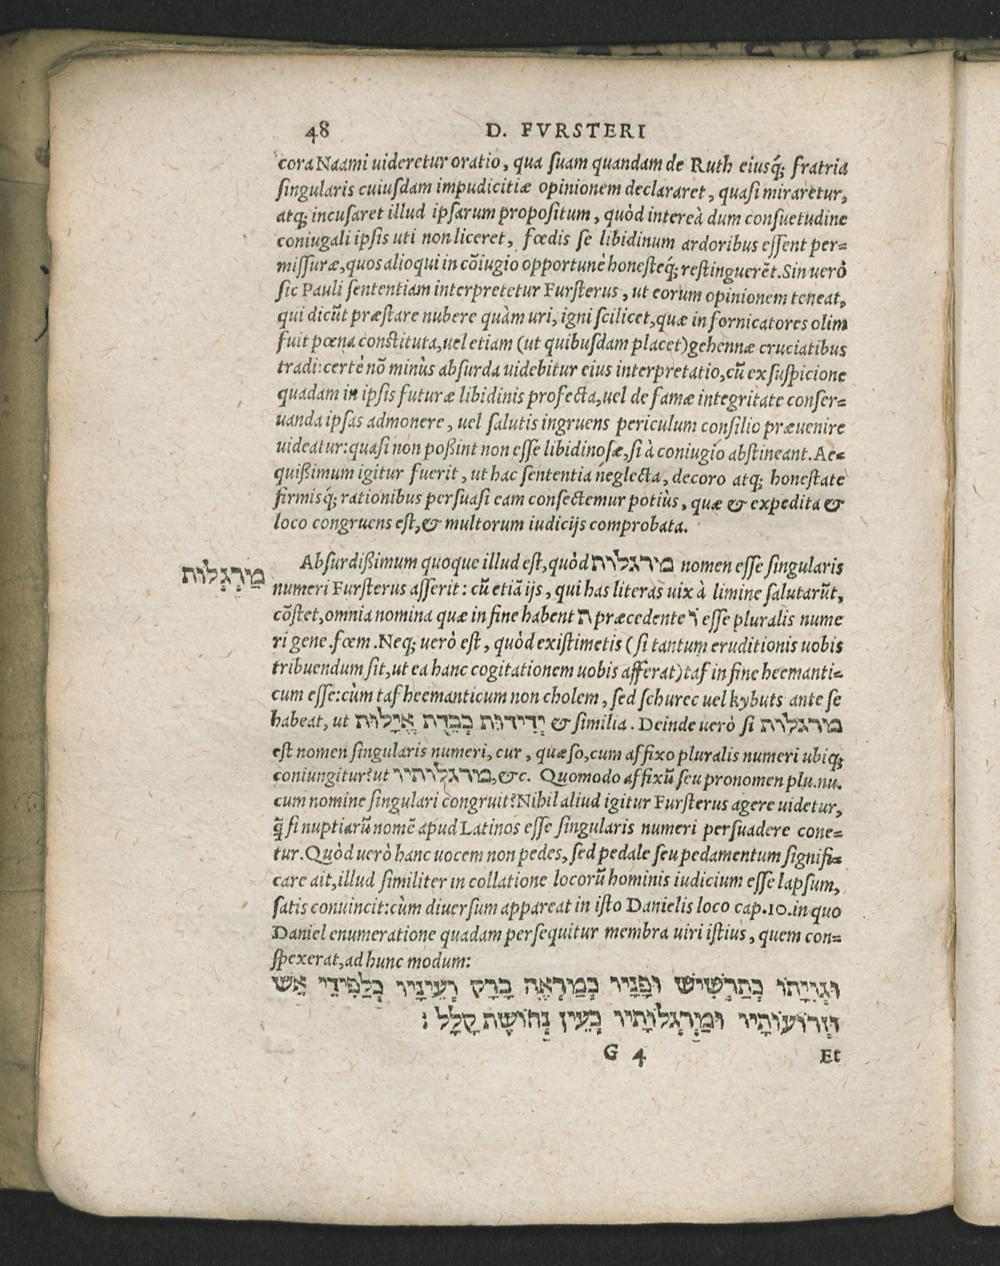 48 D. FVRSTERI
cora Naami uideretur oratio, qua suam quandam de Ruth eiusq́; fratria
singularis cuiusdam impudicitiæ opinionem declararet, quasi miraretur,
atq; incusaret illud ipsarum propositum, quòd intereà dum consuetudine
coniugali ipsis uti non liceret, fœdis se libidinum ardoribus essent per=
missuræ, quos alioqui in cõiugio opportunè honesteq́; restinguerẽt. Sin uerò
sic Pauli sententiam interpretetur Fursterus, ut eorum opinionem teneat,
qui dicũt præstare nubere quàm uri, igni scilicet, quæ in fornicatores olim
fuit pœna constituta, uel etiam (ut quibusdam placet) gehennæ cruciatibus
tradi: certè nõ minùs absurda uidebitur eius interpretatio, cũ ex suspicione
quadam in ipsis futuræ libidinis profecta, uel de famæ integritate conser=
uanda ipsas admonere, uel salutis ingruens periculum consilio præuenire
uideatur: quasi non poßint non esse libidinosæ, si à coniugio abstineant. Ae=
quißimum igitur fuerit, ut hac sententia neglecta, decoro atq; honestate
firmisq́; rationibus persuasi eam consectemur potiùs, quæ & expedita &
loco congruens est, & multorum iudicijs comprobata.
Absurdißimum quoque illud est, quòd מורגלות nomen esse singularis
מַרְגְלוֹת
numeri Fursterus asserit: cũ etiã ijs, qui has literas uix à limine salutarũt,
cõstet, omnia nomina quæ in fine habent ת præcedente וֹ esse pluralis nume
ri gene. fœm. Neq; uerò est, quòd existimetis (si tantum eruditionis uobis
tribuendum sit, ut ea hanc cogitationem uobis afferat) taf in fine heemanti=
cum esse: cùm taf heemanticum non cholem, sed schurec uel kybuts ante se
habeat, ut יְדִידוּת כְבֵדֻת אֱיָלוּת & similia. Deinde uerò si מורגלות
est nomen singularis numeri, cur, quæso, cum affixo pluralis numeri ubiq;
coniungitur? ut מורגלותיו, &c. Quomodo affixũ seu pronomen plu. nu.
cum nomine singulari congruit? Nihil aliud igitur Fursterus agere uidetur,
q̃ si nuptiarũ nomẽ apud Latinos esse singularis numeri persuadere cone=
tur. Quòd uerò hanc uocem non pedes, sed pedale seu pedamentum signifi=
care ait, illud similiter in collatione locorũ hominis iudicium esse lapsum,
satis conuincit: cùm diuersum appareat in isto Danielis loco cap. 10. in quo
Daniel enumeratione quadam persequitur membra uiri istius, quem con=
spexerat, ad hunc modum:
וּגְוִיָּתוֹ כְתַרְשִׁישׁ וּפָנָיו כְּמַרְאֵה בָרָק וְעֵינָיו כְּלַפִּידֵי אֵשׁ
וּזְרוֹעוֹתָיו וּמַרְגְּלוֹתָיו כְּעֵין נְחוֹשֶׁת קָלָל :
G 4 Et